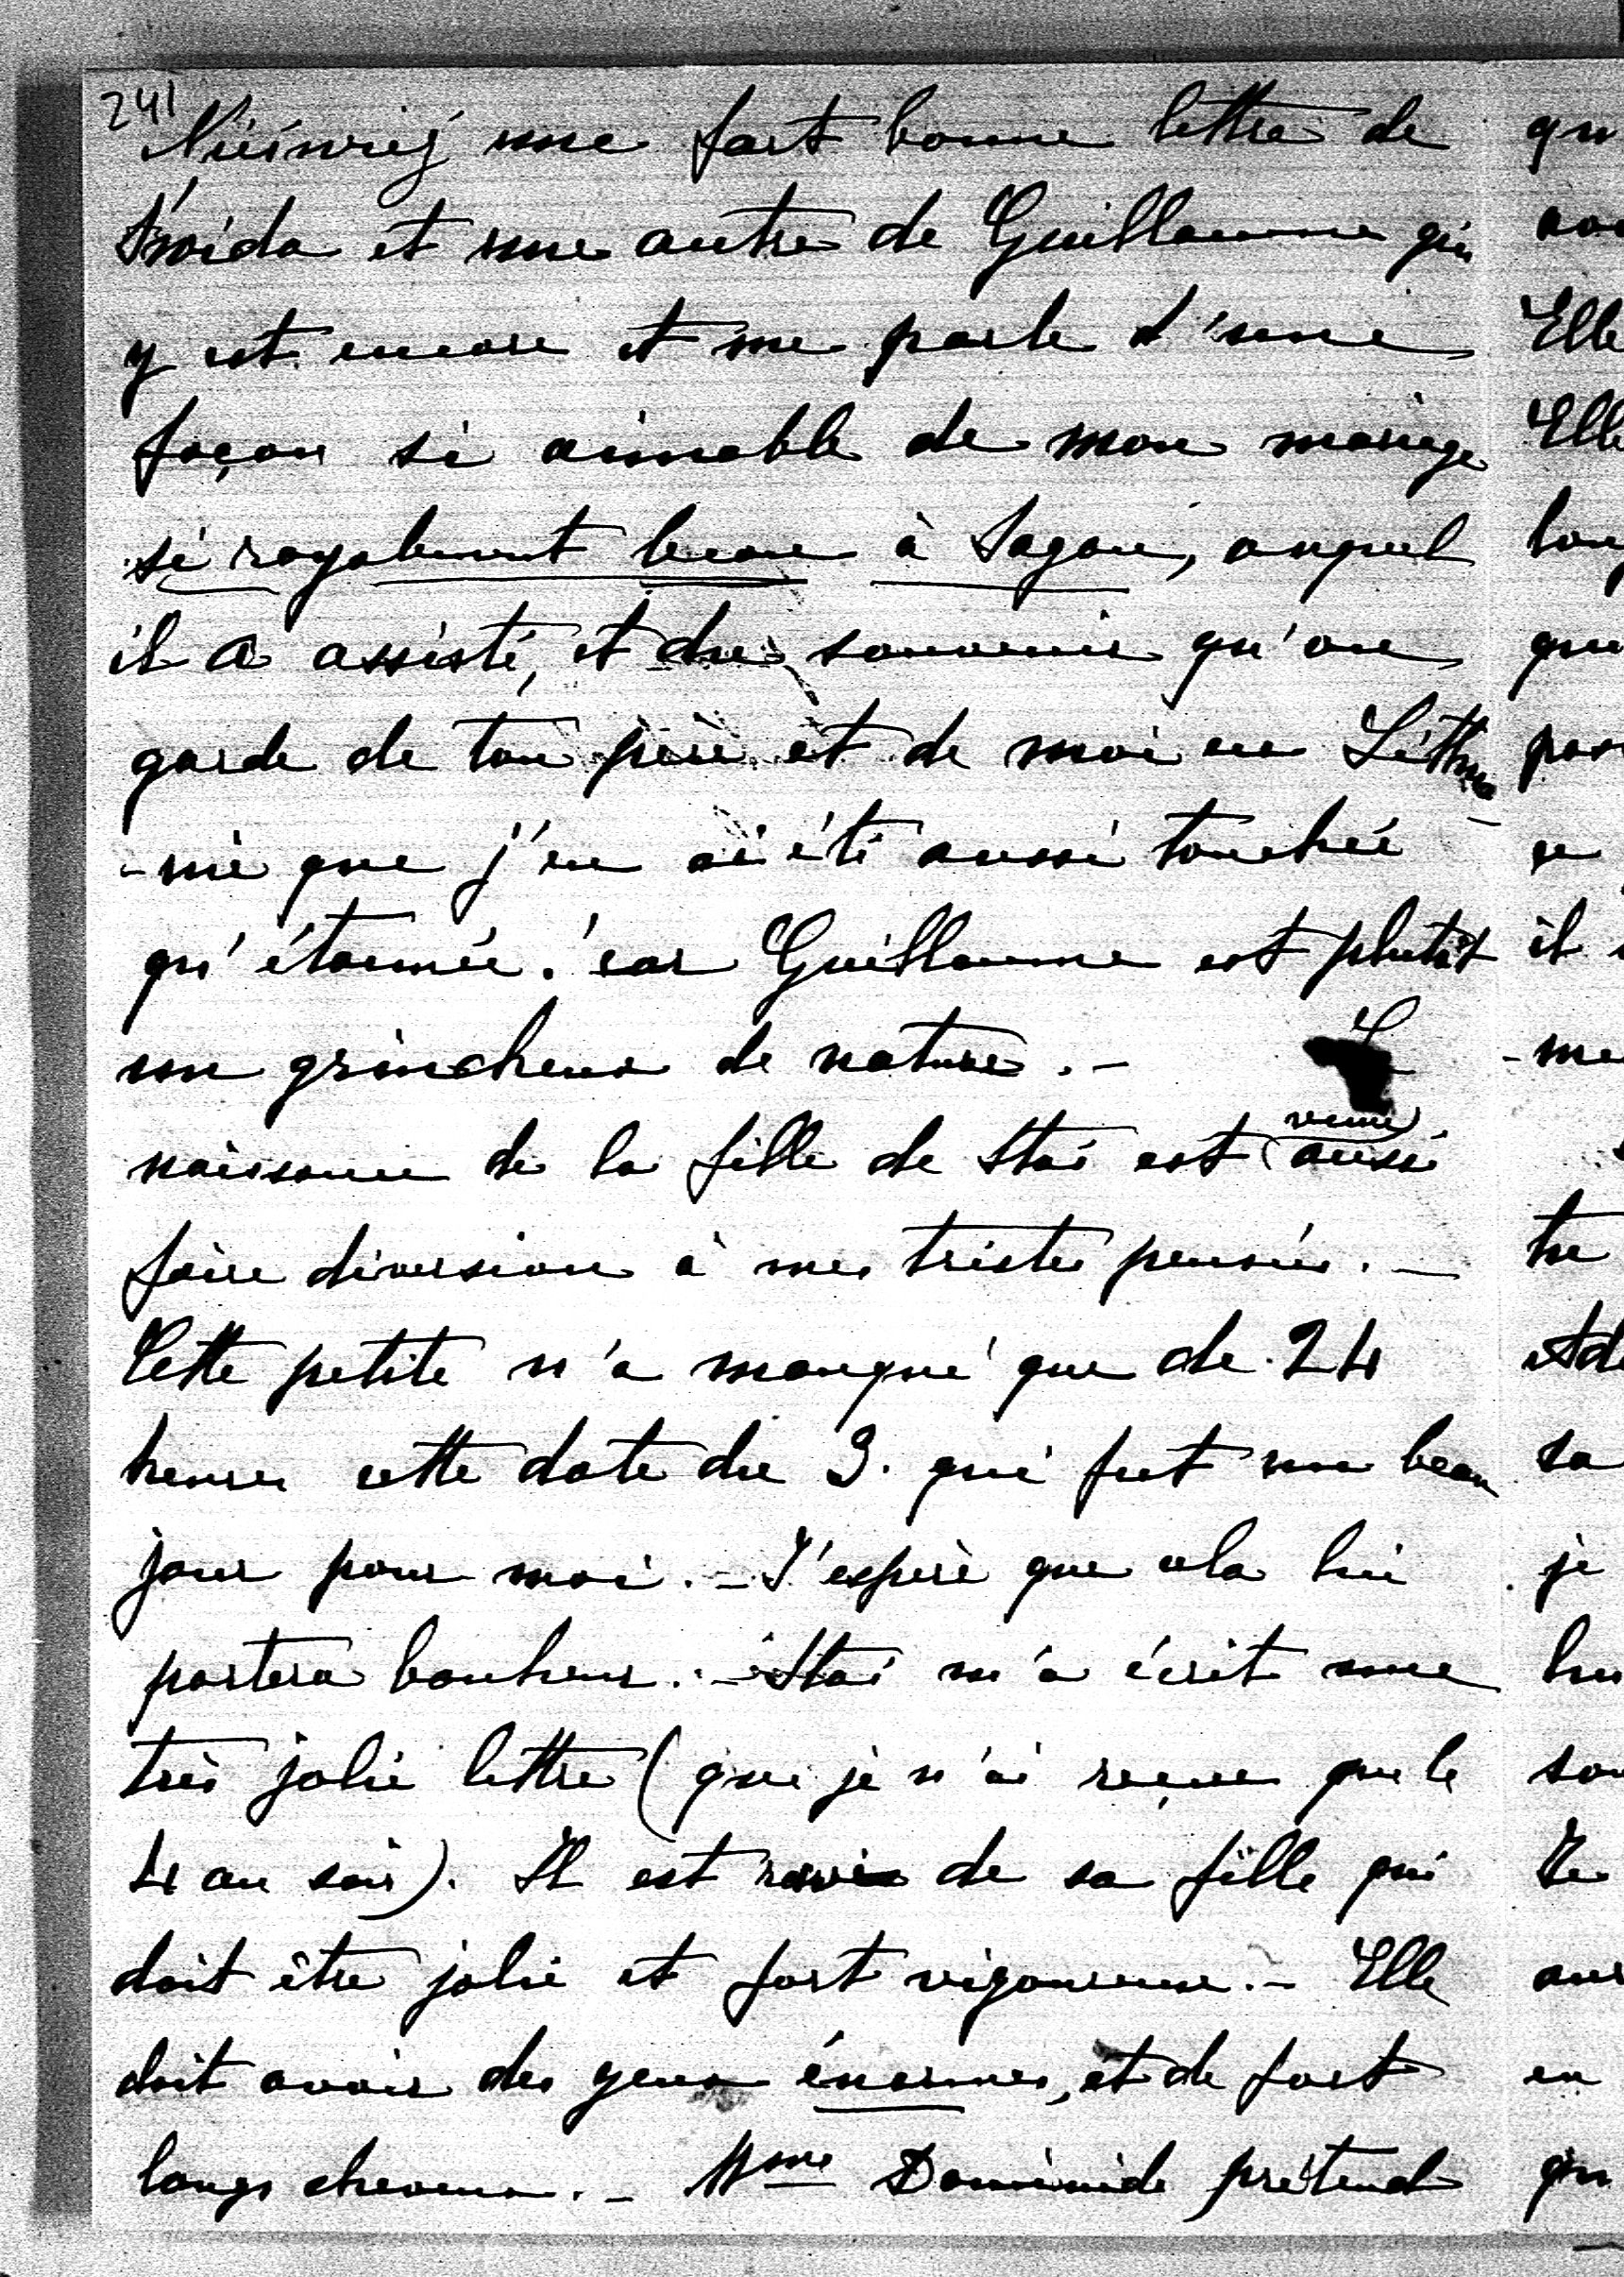 241
Niéśwież une fort bonne lettre de
et une autre de Guillaume qui
y est encore et me parle d'une
façon si aimable de mon mariage
si royalement beau à Sagan, auquel
il a assisté, et du souvenir qu'on
garde de ton père et de moi en Lithua-
-nie que j'en ai été aussi touchée
qu'étonnée. car Guillaume est plutôt
un grincheux de nature. -
naissance de la fille de Staś est venue aussi
faire diversion à mes tristes pensées. -
Cette petite n'a manqué que de 24
heures cette date du 3. qui fut un beau
jour pour moi. - J'espère que cela lui
portera bonheur. - Staś m'a écrit une
très jolie lettre (que je n'ai reçue que le
4 au soir). Il est ravi de sa fille qui
doit être jolie et fort vigoureuse. - Elle
doit avoir des yeux énormes, et de fort
longs cheveux. - Mme prétend